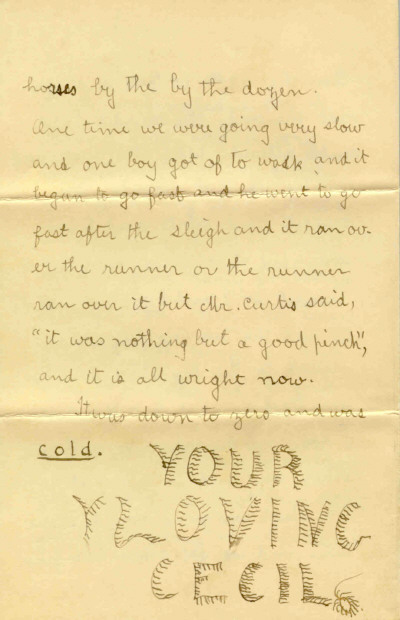 horses by the by the dozen.
One time we were going very slow
and one boy got of to walk and it
began to go fast and he went to go
fast after the sleigh and it ran ov-
er the runner or the runner
ran over it but Mr. Curtis said,
"it was nothing but a good pinch",
and it is all wright now.
It was down to zero and was
cold. YOUR
LOVING
CECIL